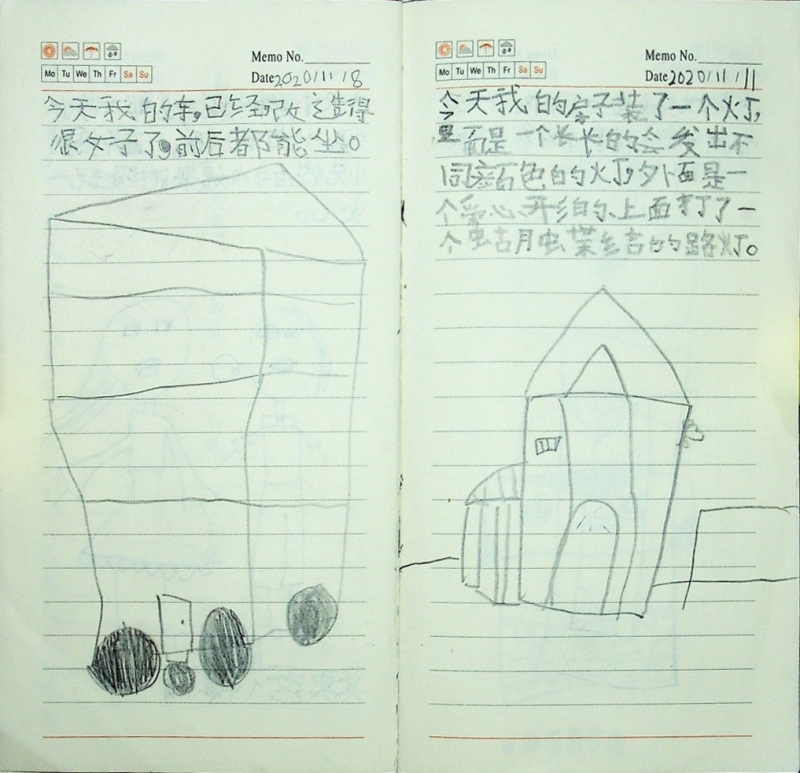 Memo No.
Mo Tu We Th Fr Sa Su
Date 2020/11/8
今天我的车,已经改造得
很好了,前后都能坐。
Memo No.
Mo Tu We Th Fr Sa Su
Date 2020/11/11
今天我的房子装了一个灯,
里面是一个长长的会发出不
同颜色的灯,外面是一
个爱心形的、上面打了一
个蝴蝶结的路灯。